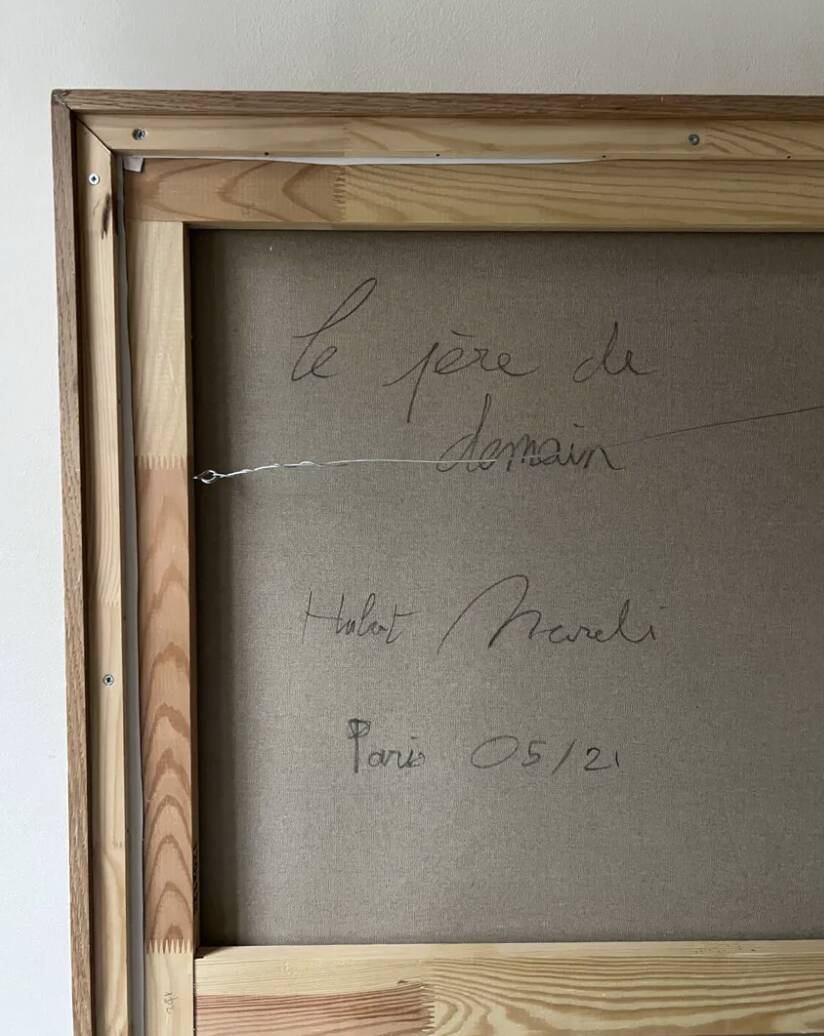 le père de
demain
Hubert
Paris 05/21